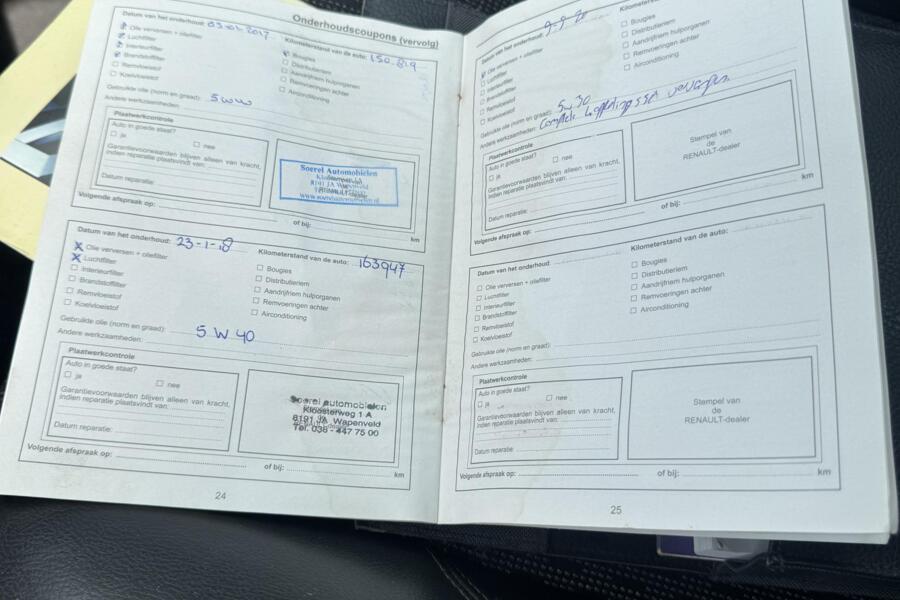 Onderhoudscoupons (vervolg)
Datum van het onderhoud: 03-01-2017
Kilometerstand van de auto: 150.819
Olie verversen + oliefilter
Luchtfilter
Interieurfilter
Brandstoffilter
Remvloeistof
Koelvloeistof
Bougies
Distributieriem
Aandrijfriem hulporganen
Remvoeringen achter
Airconditioning
Gebruikte olie (norm en graad):
Andere werkzaamheden:
Plaatwerkcontrole
Auto in goede staat?
ja
nee
Garantievoorwaarden blijven alleen van kracht,
indien reparatie plaatsvindt van:
Datum reparatie:
Soerel Automobielen
8191 JA Wapenveld
Volgende afspraak op:
of bij:
km
Datum van het onderhoud: 23-1-18
Kilometerstand van de auto: 163947
Olie verversen + oliefilter
Luchtfilter
Interieurfilter
Brandstoffilter
Remvloeistof
Koelvloeistof
Bougies
Distributieriem
Aandrijfriem hulporganen
Remvoeringen achter
Airconditioning
Gebruikte olie (norm en graad): 5 W 40
Andere werkzaamheden:
Plaatwerkcontrole
Auto in goede staat?
ja
nee
Garantievoorwaarden blijven alleen van kracht,
indien reparatie plaatsvindt van:
Datum reparatie:
Soerel automobielen
Kloosterweg 1 A
8191 JA Wapenveld
Tel. 038 - 447 75 00
Volgende afspraak op:
of bij:
km
24
Datum van het onderhoud:
Kilometerstand van de
Olie verversen + oliefilter
Luchtfilter
Interieurfilter
Brandstoffilter
Remvloeistof
Koelvloeistof
Bougies
Distributieriem
Aandrijfriem hulporganen
Remvoeringen achter
Airconditioning
Gebruikte olie (norm en graad): 5w30
Andere werkzaamheden: Complete koppelingsset vervangen
Plaatwerkcontrole
Auto in goede staat?
ja
nee
Garantievoorwaarden blijven alleen van kracht,
indien reparatie plaatsvindt van:
Datum reparatie:
Stempel van
de
RENAULT-dealer
Volgende afspraak op:
of bij:
km
Datum van het onderhoud:
Kilometerstand van de auto:
Olie verversen + oliefilter
Luchtfilter
Interieurfilter
Brandstoffilter
Remvloeistof
Koelvloeistof
Bougies
Distributieriem
Aandrijfriem hulporganen
Remvoeringen achter
Airconditioning
Gebruikte olie (norm en graad):
Andere werkzaamheden:
Plaatwerkcontrole
Auto in goede staat?
ja
nee
Garantievoorwaarden blijven alleen van kracht,
indien reparatie plaatsvindt van:
Datum reparatie:
Stempel van
de
RENAULT-dealer
Volgende afspraak op:
of bij:
km
25